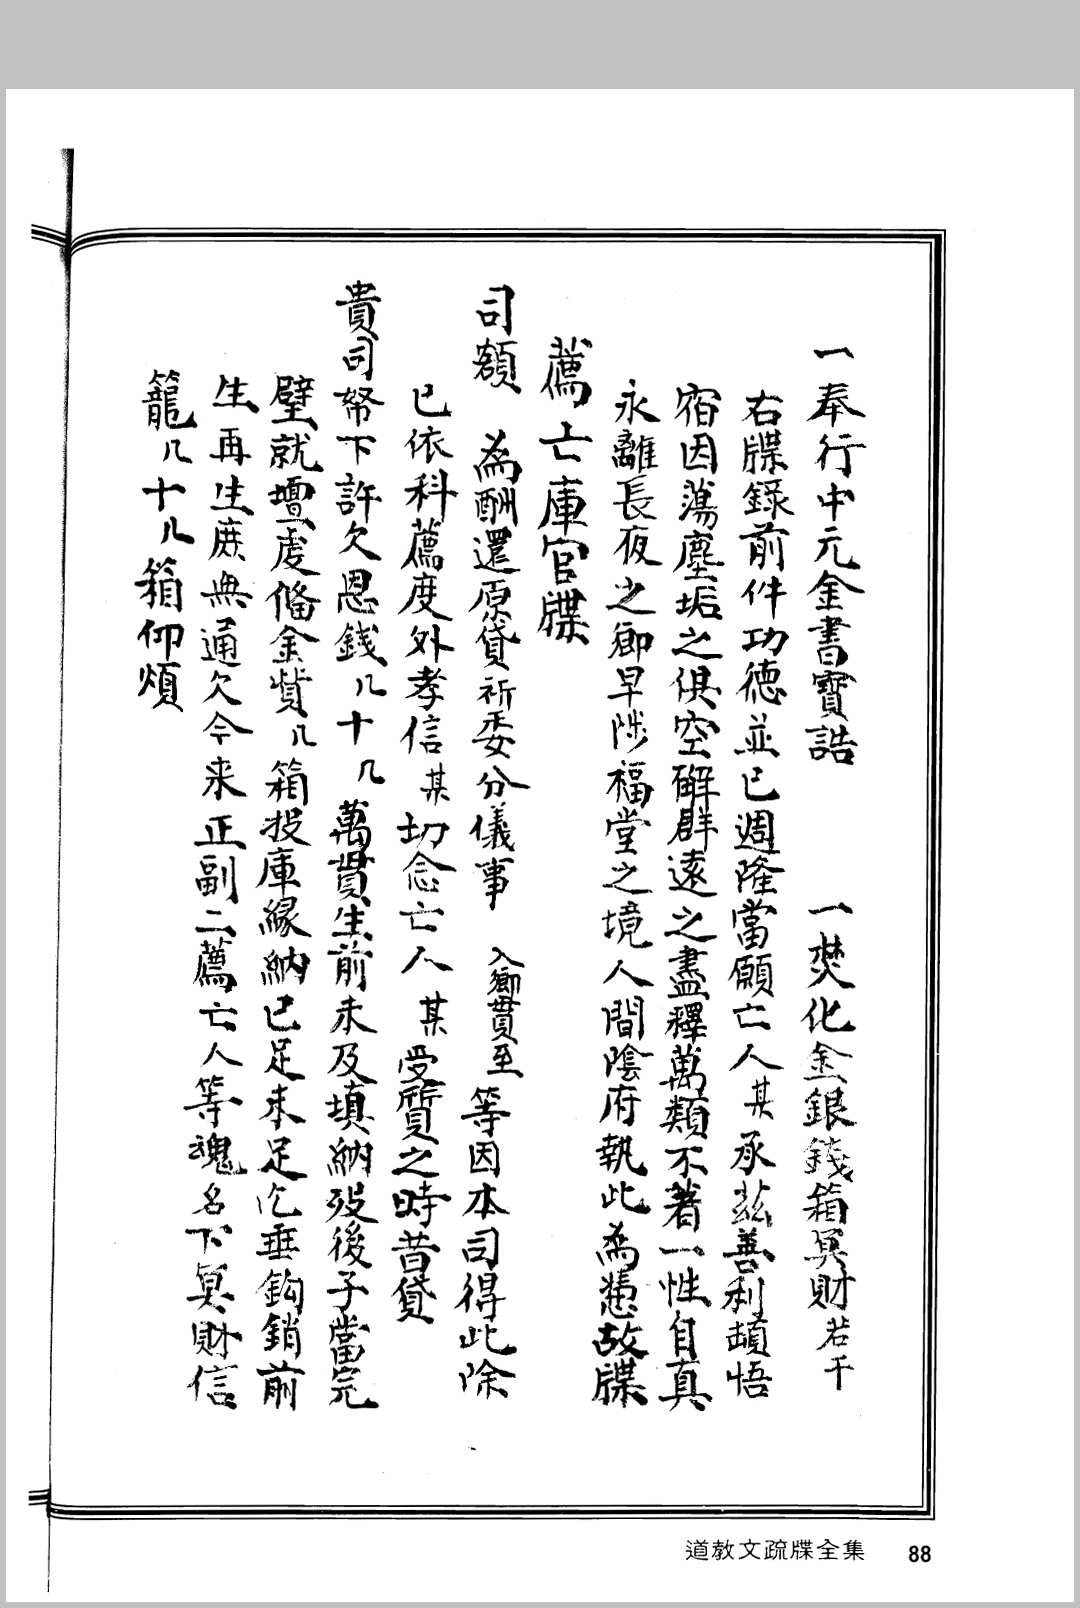 一奉行中元金書寶誥　一焚化金銀錢箱冥財若干
右牒錄前件功德並已週隆當願亡人某承茲善利頓悟
宿因蕩塵垢之俱空解群遠之盡釋萬類不著一性自真
永離長夜之鄉早陟福堂之境人間陰府執此為憑故牒
薦亡庫官牒
司額　為酬還原貸祈委分儀事　入鄉貫至等因本司得此除
已依科薦度外孝信某切念亡人某受質之時昔貸
貴司帑下許欠恩錢几十几萬貫生前未及填納歿後子當完
璧就壇虔俻金貲几箱投庫緣納已足未足乞垂鈎銷前
生再生庶無通欠今来正副二薦亡人等魂名下冥財信
籠几十几箱仰煩
道教文疏牒全集　88